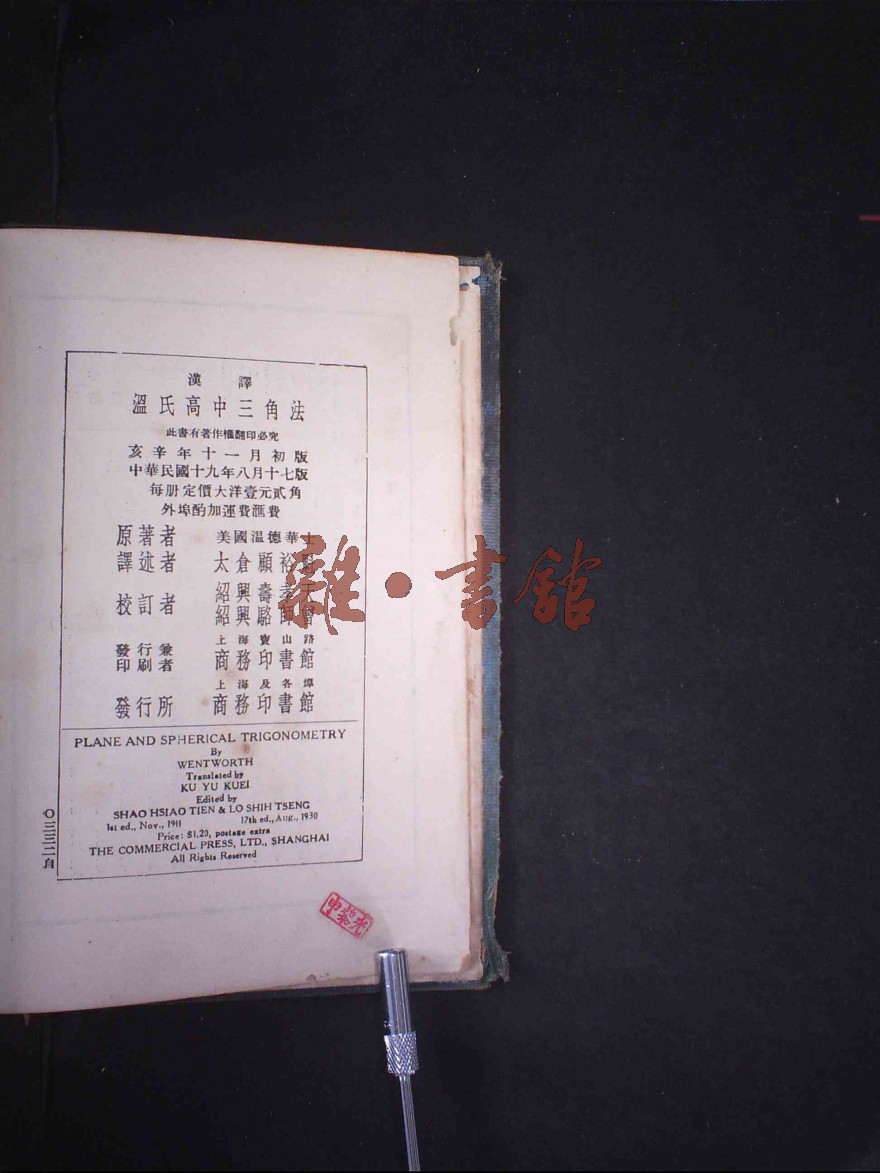 漢譯
溫氏高中三角法
此書有著作權翻印必究
亥辛年十一月初版
中華民國十九年八月十七版
每册定價大洋壹元貳角
外埠酌加運費滙費
原著者 美國温德華士
譯述者 太倉顧裕
校訂者 紹興壽孝天
紹興駱師曾
發行兼印刷者 上海寶山路
商務印書館
發行所 上海及各埠
商務印書館
PLANE AND SPHERICAL TRIGONOMETRY
By
WENTWORTH
Translated by
KU YU KUEI
Edited by
SHAO HSIAO TIEN & LO SHIH TSENG
1st ed., Nov., 1911 17th ed., Aug., 1930
Price: $1.20, postage extra
THE COMMERCIAL PRESS, LTD., SHANGHAI
All Rights Reserved
〇三三二自
雜·書館